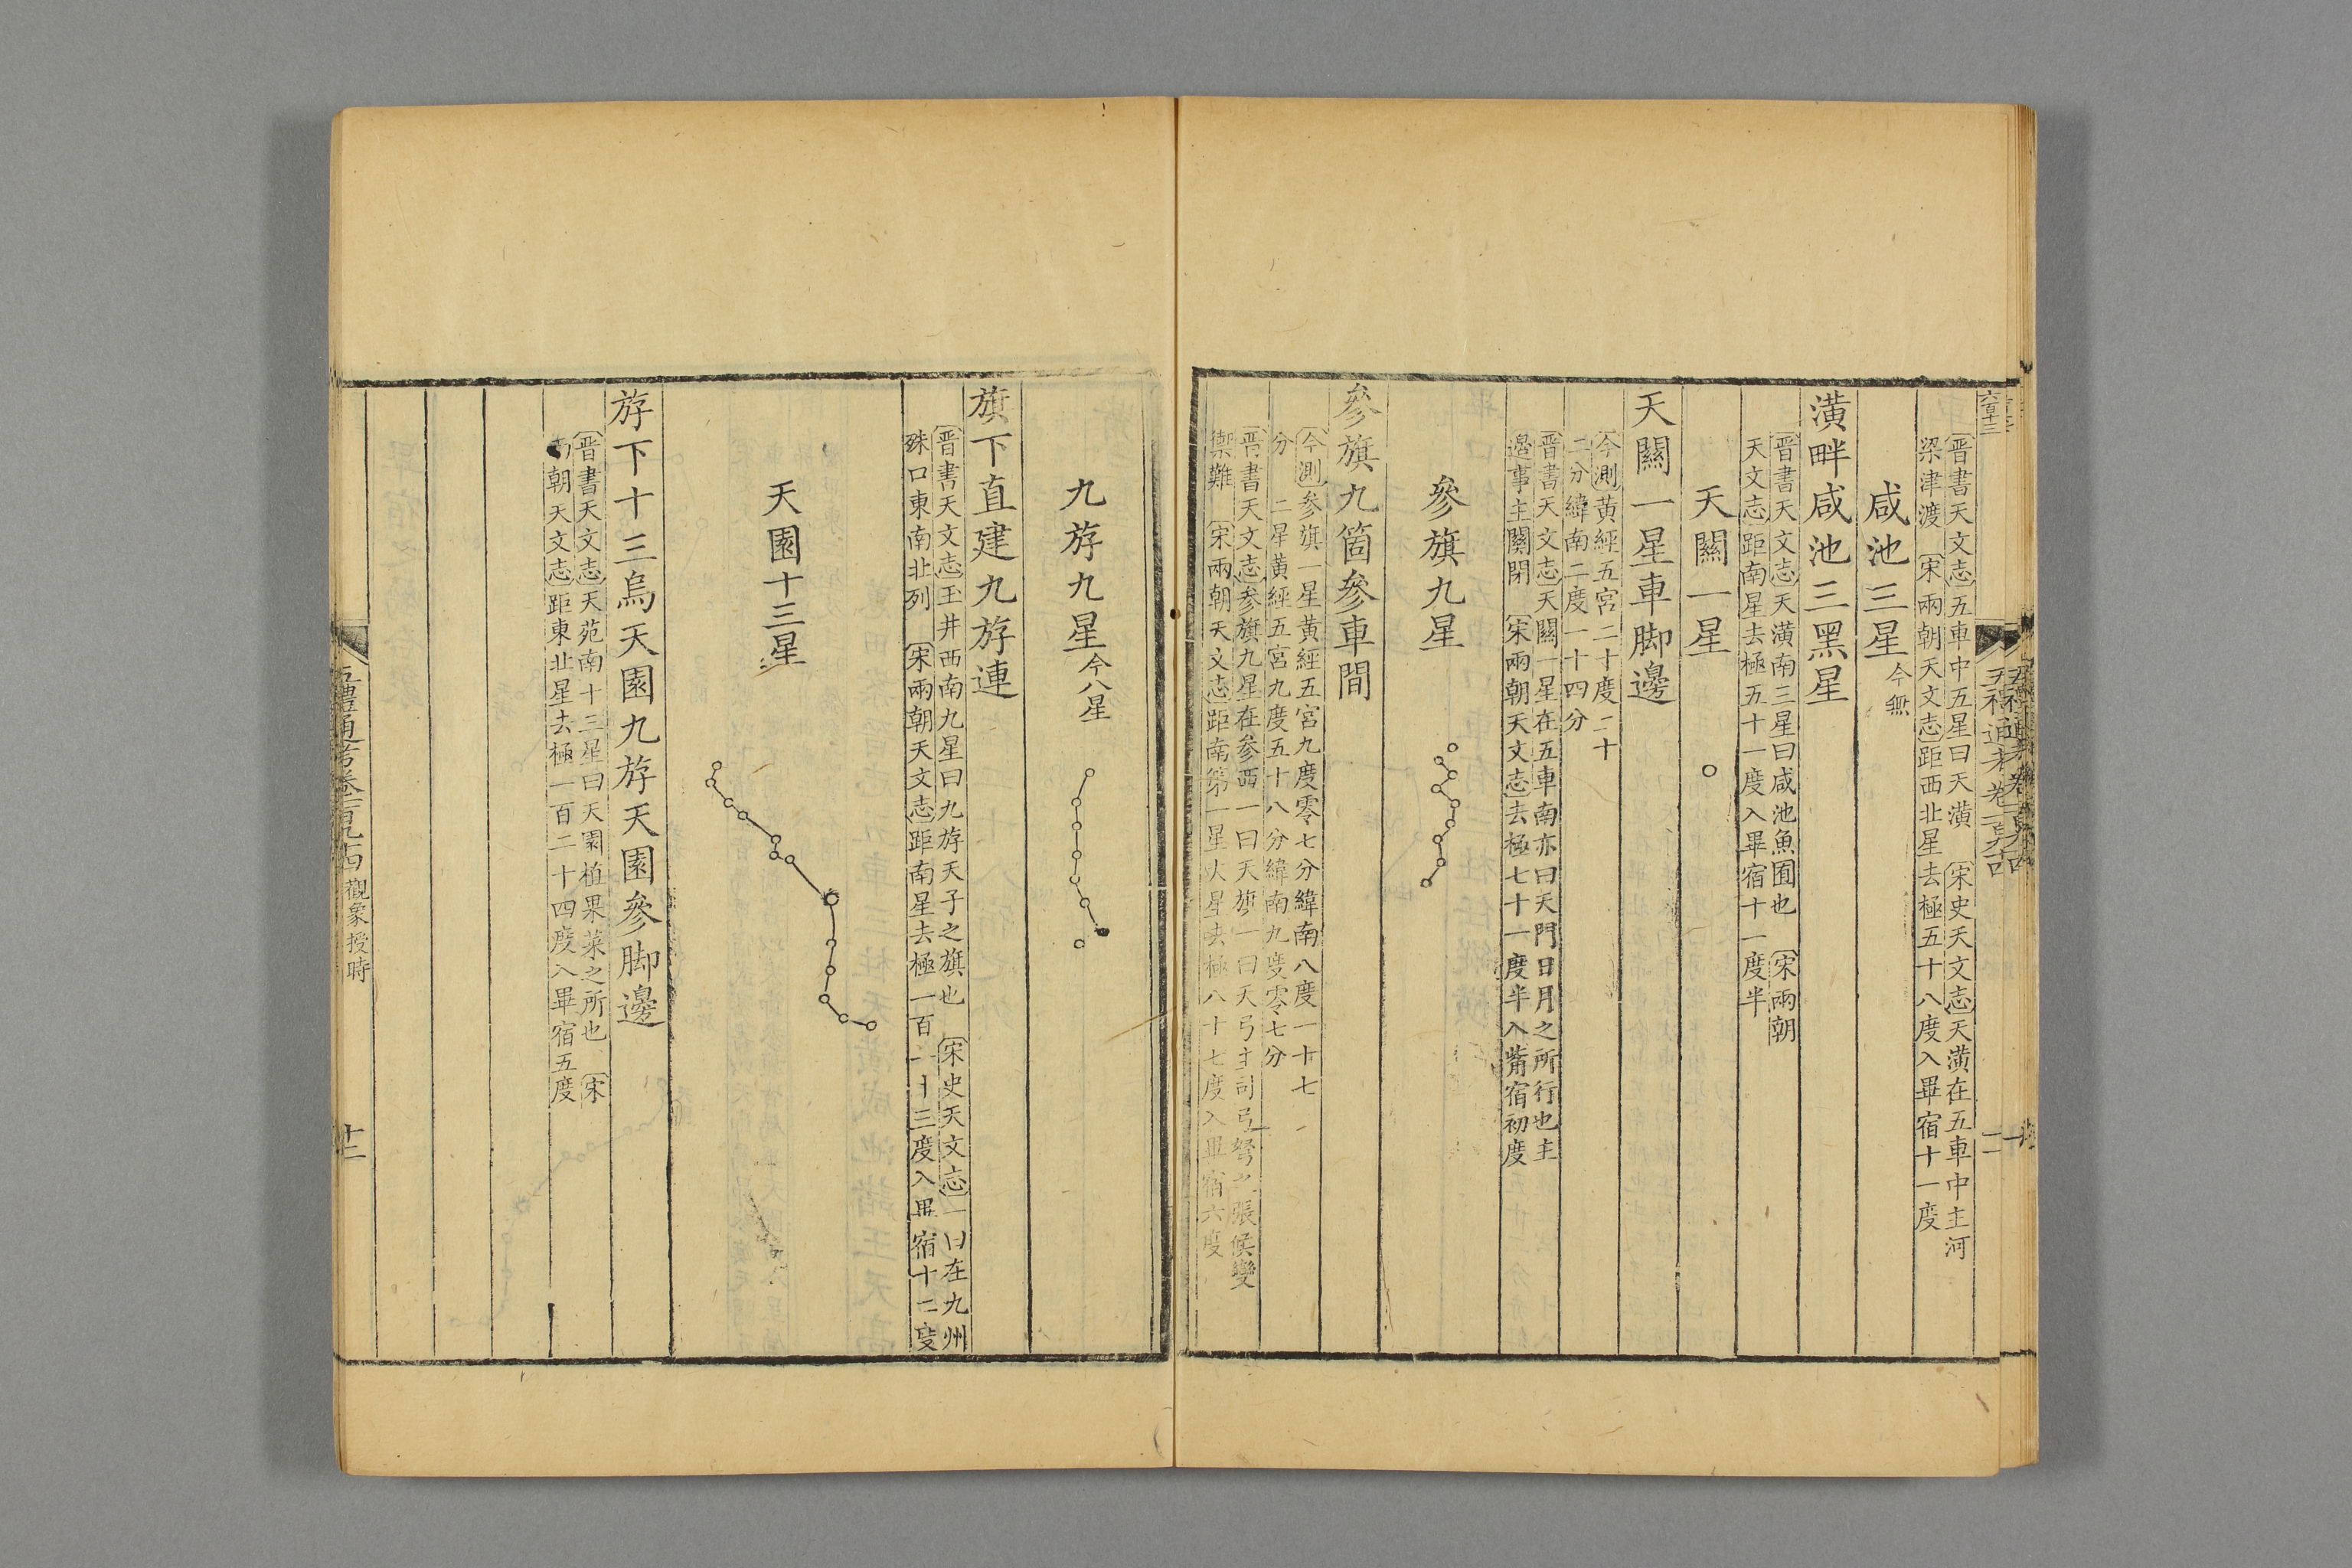 晋書天文志五車中五星曰天潢 宋史天文志天潢在五車中主河
梁津渡 宋兩朝天文志距西北星去極五十八度入畢宿十一度
咸池三星今無
潢畔咸池三黑星
晋書天文志天潢南三星曰咸池魚囿也 宋兩朝
天文志距南星去極五十一度入畢宿十一度半
天關一星
天關一星車脚邊
今測黃經五宮二十度二十
二分緯南二度一十四分
晋書天文志天關一星在五車南亦曰天門日月之所行也主
邊事主關閉 宋兩朝天文志去極七十一度半入觜宿初度
參旗九星
參旗九箇參車間
今測参旗一星黃經五宮九度零七分緯南八度一十七
分 二星黃經五宮九度五十八分緯南九度零七分
晋書天文志参旗九星在参西一曰天旗一曰天弓主司弓弩之張候變
禦難 宋兩朝天文志距南第一星火星去極八十七度入畢宿六度
九斿九星今八星
旗下直建九斿連
晋書天文志玉井西南九星曰九斿天子之旗也 宋史天文志一曰在九州
殊口東南北列 宋兩朝天文志距南星去極一百一十三度入畢宿十二度
天園十三星
斿下十三烏天園九斿天園參脚邊
晋書天文志天苑南十三星曰天園植果菜之所也 宋
朝天文志距東北星去極一百二十四度入畢宿五度
五禮通考卷一百九十四 觀象授時
十二